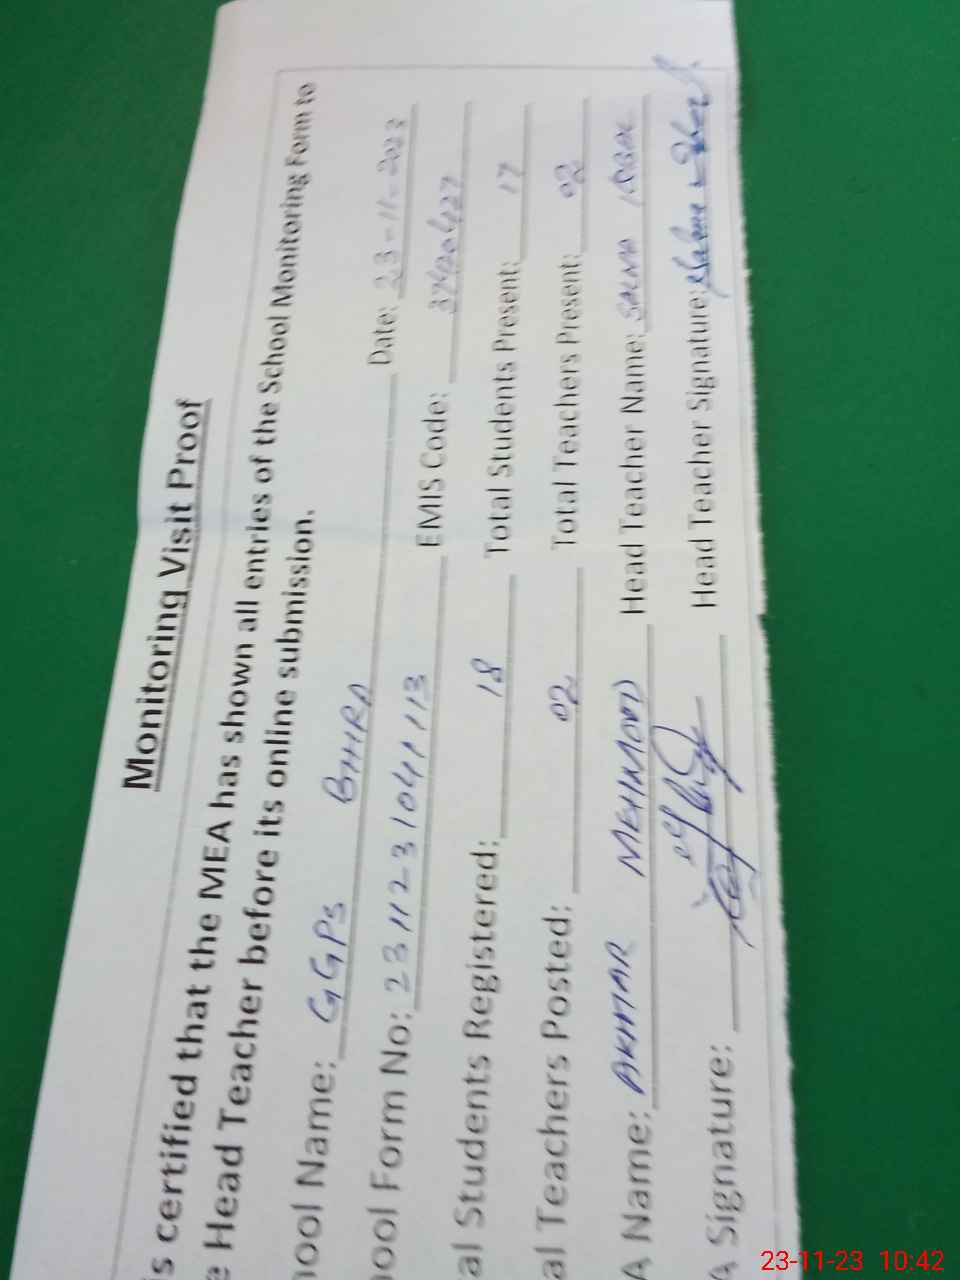 Monitoring Visit Proof
is certified that the MEA has shown all entries of the School Monitoring Form to
e Head Teacher before its online submission.
hool Name: GGPS BHHRA Date: 23-11-2023
hool Form No: 2311231041113 EMIS Code: 37400427
al Students Registered: 18 Total Students Present: 17
al Teachers Posted: 02 Total Teachers Present: 02
A Name: AKHTAR MEHMOOD Head Teacher Name: SALMA IQBAL
A Signature: Head Teacher Signature: Salma
23-11-23 10:42